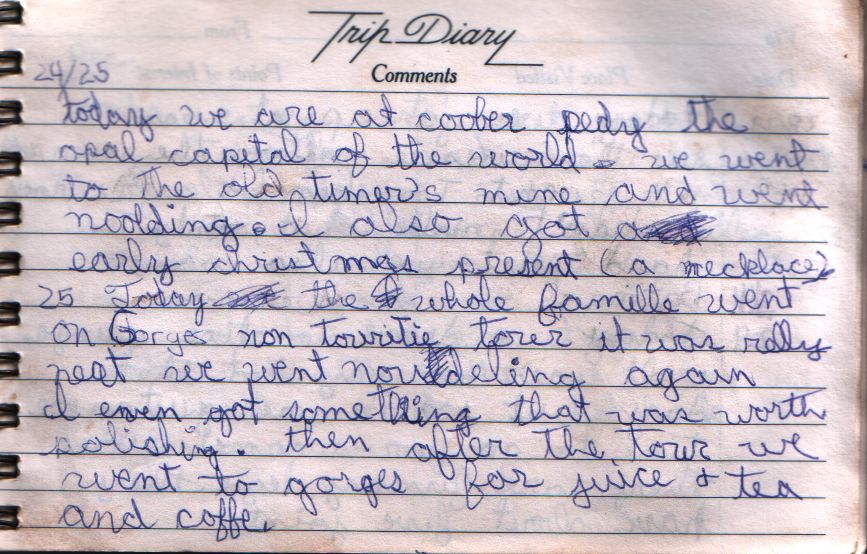 Trip Diary
Comments
24/25
today we are at coober pedy the
opal capital of the world. we went
to the old timer's mine and went
noodding. I also got a
early christmas present (a necklace)
25 Today the whole famille went
on Gorges non touritie tour it was relly
neat we went nouddeling again
I even got something that was worth
polishing. then after the tour we
went to gorges for juice & tea
and coffe.